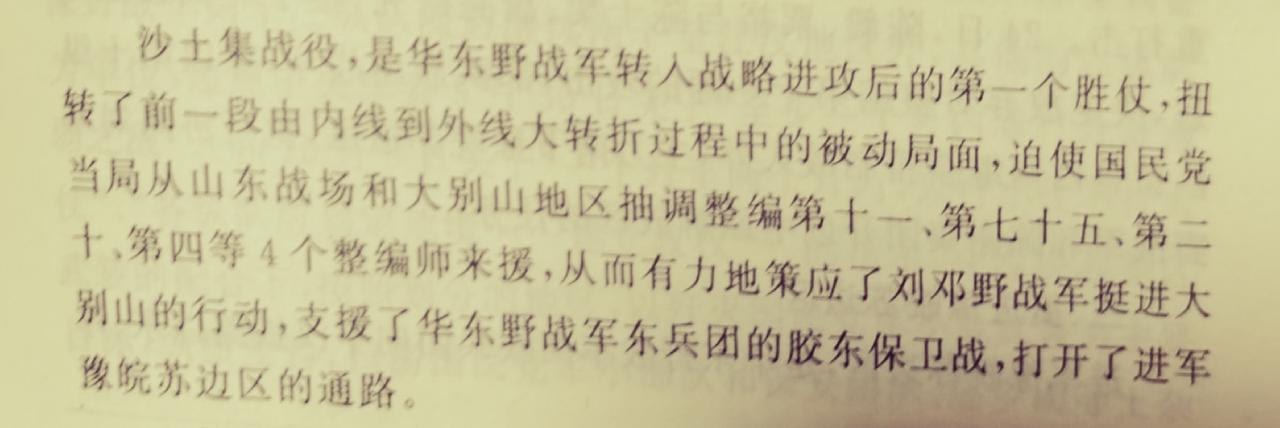 沙土集战役,是华东野战军转入战略进攻后的第一个胜仗,扭
转了前一段由内线到外线大转折过程中的被动局面,迫使国民党
当局从山东战场和大别山地区抽调整编第十一、第七十五、第二
十、第四等4个整编师来援,从而有力地策应了刘邓野战军挺进大
别山的行动,支援了华东野战军东兵团的胶东保卫战,打开了进军
豫皖苏边区的通路。